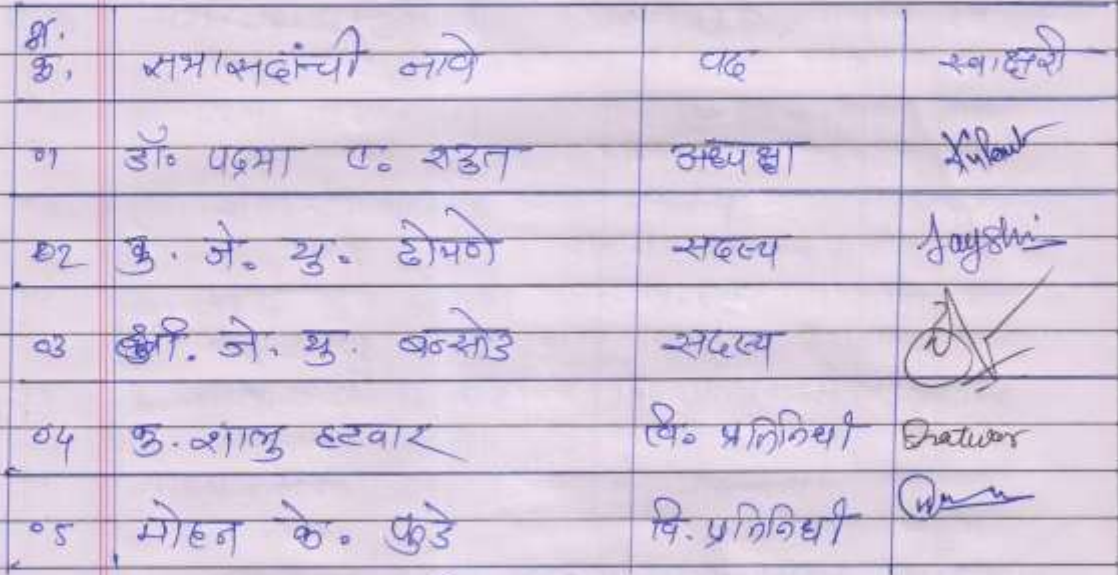 अ.
क्र. सभासदांची नावे पद स्वाक्षरी
01 डॉ. पद्मा ए. राऊत अध्यक्षा
02 कु. जे. यु. टोपणे सदस्य Jayshri
03 श्री. जे. यु. बन्सोड सदस्य
04 कु. शालु हटवार वि. प्रतिनिधी Shatwar
05 मोहन के. फुडे वि. प्रतिनिधी